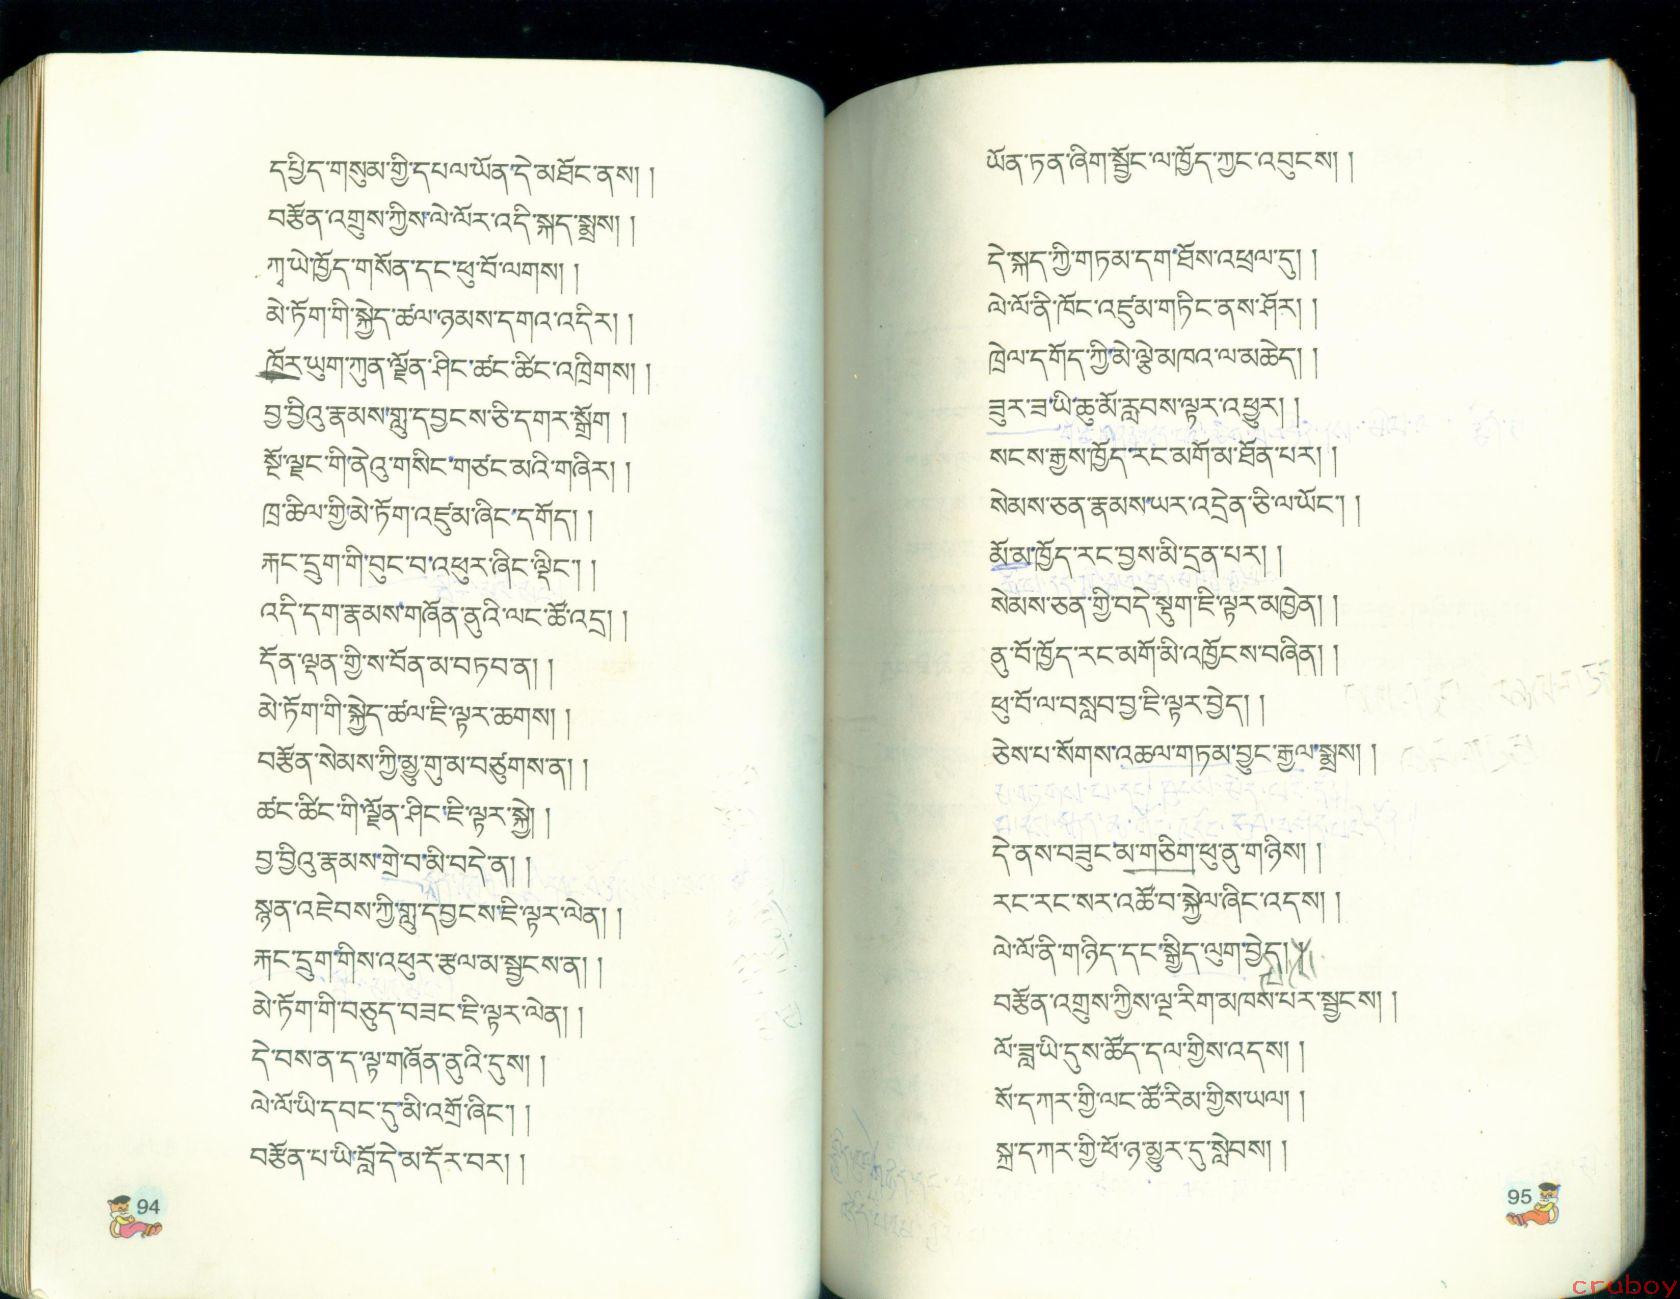 དཔྱིད་གསུམ་གྱི་དཔལ་ཡོན་དེ་མཐོང་ནས། །
བརྩོན་འགྲུས་ཀྱིས་ལེ་ལོར་འདི་སྐད་སྨྲས། །
ཀྭ་ཡེ་ཁྱོད་གསོན་དང་ཕུ་བོ་ལགས། །
མེ་ཏོག་གི་སྐྱེད་ཚལ་ཉམས་དགའ་འདིར། །
ཁོར་ཡུག་ཀུན་ལྗོན་ཤིང་ཚང་ཚིང་འཁྲིགས། །
བྱ་བྱིའུ་རྣམས་གླུ་དབྱངས་ཅི་དགར་སྒྲོག །
སྔོ་ལྗང་གི་ནེའུ་གསིང་གཙང་མའི་གཞིར། །
ཁྲ་ཆིལ་གྱི་མེ་ཏོག་འཛུམ་ཞིང་དགོད། །
རྐང་དྲུག་གི་བུང་བ་འཕུར་ཞིང་ལྡིང་། །
འདི་དག་རྣམས་གཞོན་ནུའི་ལང་ཚོ་འདྲ། །
དོན་ལྡན་གྱི་ས་བོན་མ་བཏབ་ན། །
མེ་ཏོག་གི་སྐྱེད་ཚལ་ཇི་ལྟར་ཆགས། །
བརྩོན་སེམས་ཀྱི་མྱུ་གུ་མ་བཙུགས་ན། །
ཚང་ཚིང་གི་ལྗོན་ཤིང་ཇི་ལྟར་སྐྱེ། །
བྱ་བྱིའུ་རྣམས་གྲེ་བ་མི་བདེ་ན། །
སྙན་འཇེབས་ཀྱི་གླུ་དབྱངས་ཇི་ལྟར་ལེན། །
རྐང་དྲུག་གིས་འཕུར་རྩལ་མ་སྦྱངས་ན། །
མེ་ཏོག་གི་བཅུད་བཟང་ཇི་ལྟར་ལེན། །
དེ་བས་ན་ད་ལྟ་གཞོན་ནུའི་དུས། །
ལེ་ལོ་ཡི་དབང་དུ་མི་འགྲོ་ཞིང་། །
བརྩོན་པ་ཡི་བློ་དེ་མ་དོར་བར། །
94
ཡོན་ཏན་ཞིག་སྦྱོང་ལ་ཁྱོད་ཀྱང་འབུངས། །
དེ་སྐད་ཀྱི་གཏམ་དག་ཐོས་འཕྲལ་དུ། །
ལེ་ལོ་ནི་ཁོང་འཛུམ་གཏིང་ནས་ཤོར། །
ཁྲེལ་དགོད་ཀྱི་མེ་ལྕེ་མཁའ་ལ་མཆེད། །
ཟུར་ཟ་ཡི་ཆུ་མོ་རླབས་ལྟར་འཕྱུར། །
སངས་རྒྱས་ཁྱོད་རང་མགོ་མ་ཐོན་པར། །
སེམས་ཅན་རྣམས་ཡར་འདྲེན་ཅི་ལ་ཡོང་། །
མོ་མ་ཁྱོད་རང་བྱས་མི་དྲན་པར། །
སེམས་ཅན་གྱི་བདེ་སྡུག་ཇི་ལྟར་མཁྱེན། །
ནུ་བོ་ཁྱོད་རང་མགོ་མི་འཁྱོངས་བཞིན། །
ཕུ་བོ་ལ་བསླབ་བྱ་ཇི་ལྟར་བྱེད། །
ཅེས་པ་སོགས་འཆལ་གཏམ་བྱུང་རྒྱལ་སྨྲས། །
དེ་ནས་བཟུང་མ་གཅིག་ཕུ་ནུ་གཉིས། །
རང་རང་སར་འཚོ་བ་སྐྱེལ་ཞིང་འདས། །
ལེ་ལོ་ནི་གཉིད་དང་སྒྱིད་ལུག་བྱེད། །
བརྩོན་འགྲུས་ཀྱིས་ལྔ་རིག་མཁས་པར་སྦྱངས། །
ལོ་ཟླ་ཡི་དུས་ཚོད་དལ་གྱིས་འདས། །
སོ་དཀར་གྱི་ལང་ཚོ་རིམ་གྱིས་ཡལ། །
སྐྲ་དཀར་གྱི་ཕོ་ཉ་མྱུར་དུ་སླེབས། །
95
cruboy